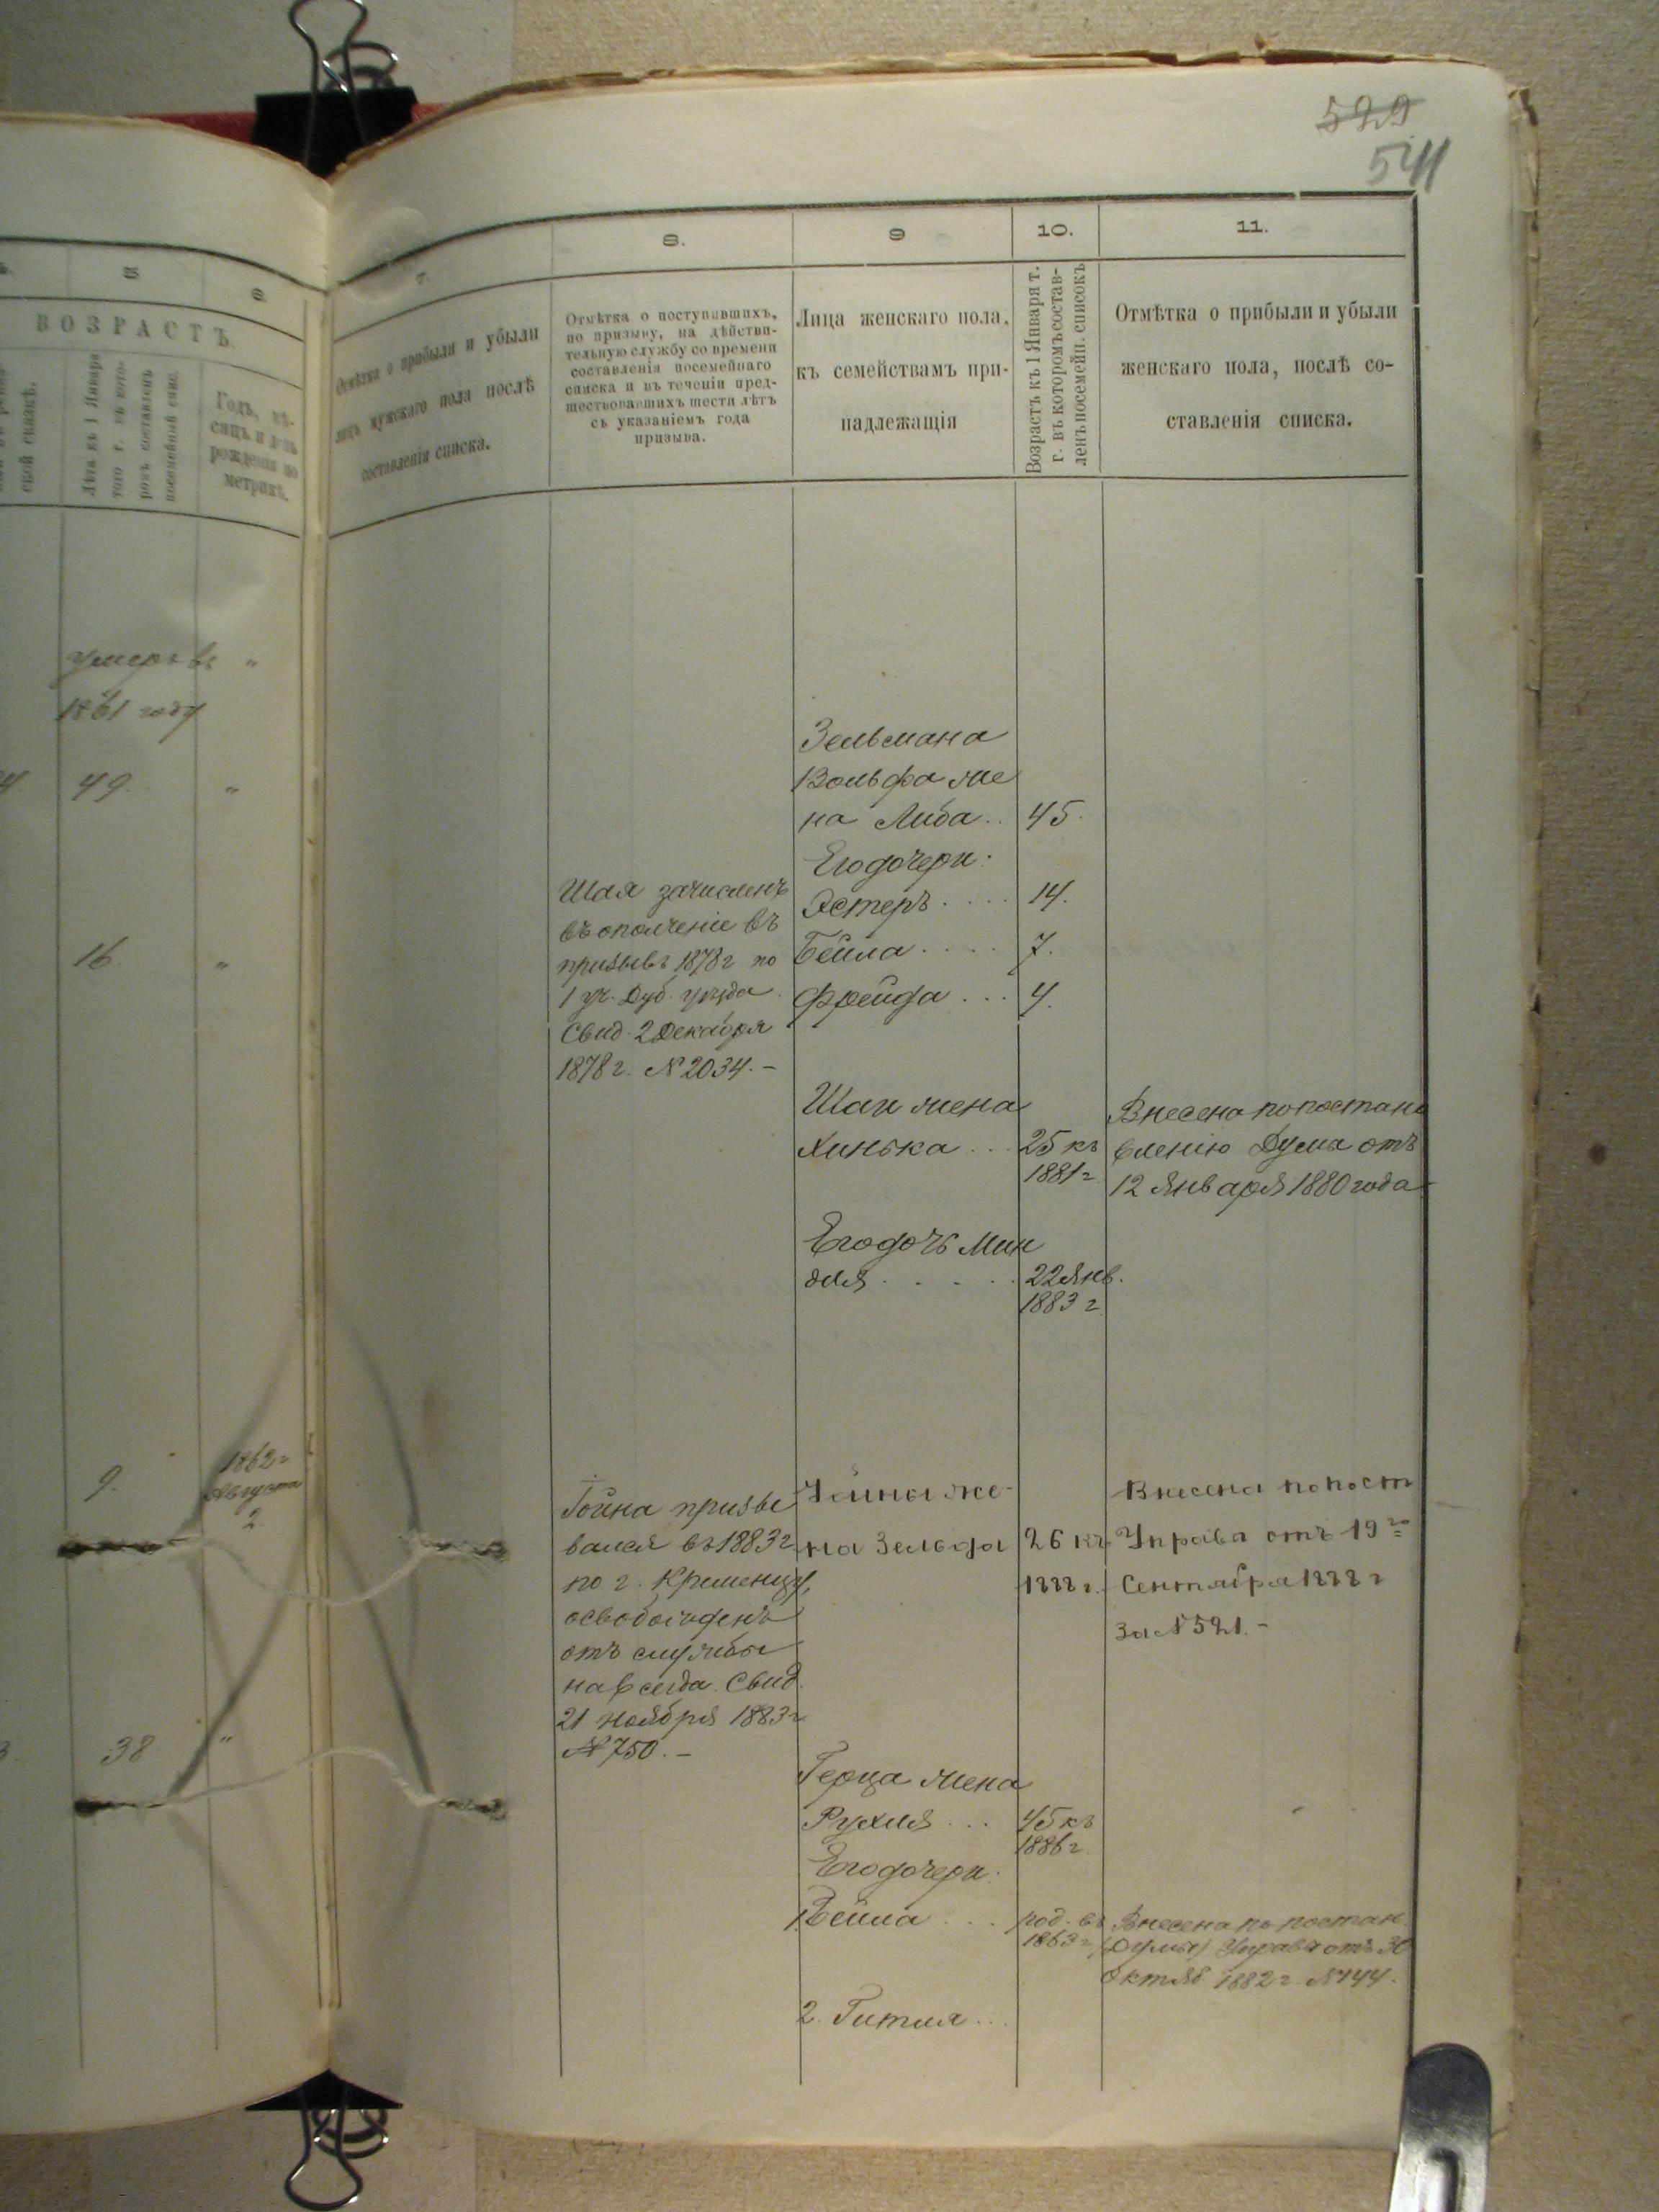 529
541
5
6.
ВОЗРАСТЪ.
ской сказкѣ.
Лѣта къ 1 Января
того г. въ кото-
ромъ составленъ
посемейный спис.
Годъ, мѣ-
сяцъ и день
рожденія по
метрикѣ.
умеръ въ "
1861 году
49. "
16. "
9.
1862 г
Августа
2
38 "
7.
8.
9
10.
11.
Отмѣтка о прибыли и убыли
лицъ мужскаго пола послѣ
составленія списка.
Отмѣтка о поступившихъ,
по призыву, на дѣйстви-
тельную службу со времени
составленія посемейнаго
списка и въ теченіи пред-
шествовавшихъ шести лѣтъ
съ указаніемъ года
призыва.
Лица женскаго пола,
къ семействамъ при-
надлежащія
Возрастъ къ 1 Января т.
г. въ которомъ состав-
ленъ посемейн. списокъ
Отмѣтка о прибыли и убыли
женскаго пола, послѣ со-
ставленія списка.
Шая зачисленъ
въ ополченіе въ
призывъ 1878 г по
1 уч. Дуб. уѣзда.
Свид. 2 Декабря
1878 г. № 2034. –
Зельмана
Вольфа же
на Либа.. 45.
Его дочери:
Эстеръ.... 14.
Бейла.... 7.
Фрейда... 4.
Шаи жена
Хинька... 25 къ
1881 г
Внесена по постано
вленію Думы отъ
12 Января 1880 года
Его дочь Мин
для..... 22 Янв.
1883 г
Гойна призы
вался въ 1883 г
по г. Кременцу,
освобожденъ
отъ службы
навсегда. Свид.
21 Ноября 1883 г
№ 750. –
же-
на Зельда 26 къ
1888 г.
Внесена по пост
Управы отъ 19 го
Сентября 1888 г
за № 521. –
Герца жена
Рухля... 45 къ
1886 г.
Его дочери:
1. Бейла... род. въ
1863 г
Внесена по постан
(Думы) Управы отъ 30
Октяб. 1882 г. № 144.
2. Гитля...